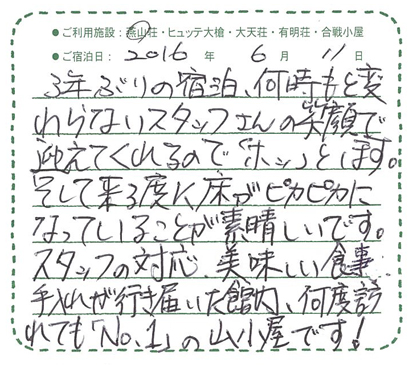 ●ご利用施設：燕山荘・ヒュッテ大槍・大天荘・有明荘・合戦小屋
●ご宿泊日：2016年 6月 11日
3年ぶりの宿泊、何時もと変
わらないスタッフさんの笑顔で
迎えてくれるので「ホッ」とします。
そして来る度に床がピカピカに
なっていることが素晴しいです。
スタッフの対応、美味しい食事
手入れが行き届いた館内、何度訪
れても「No.1」の山小屋です!